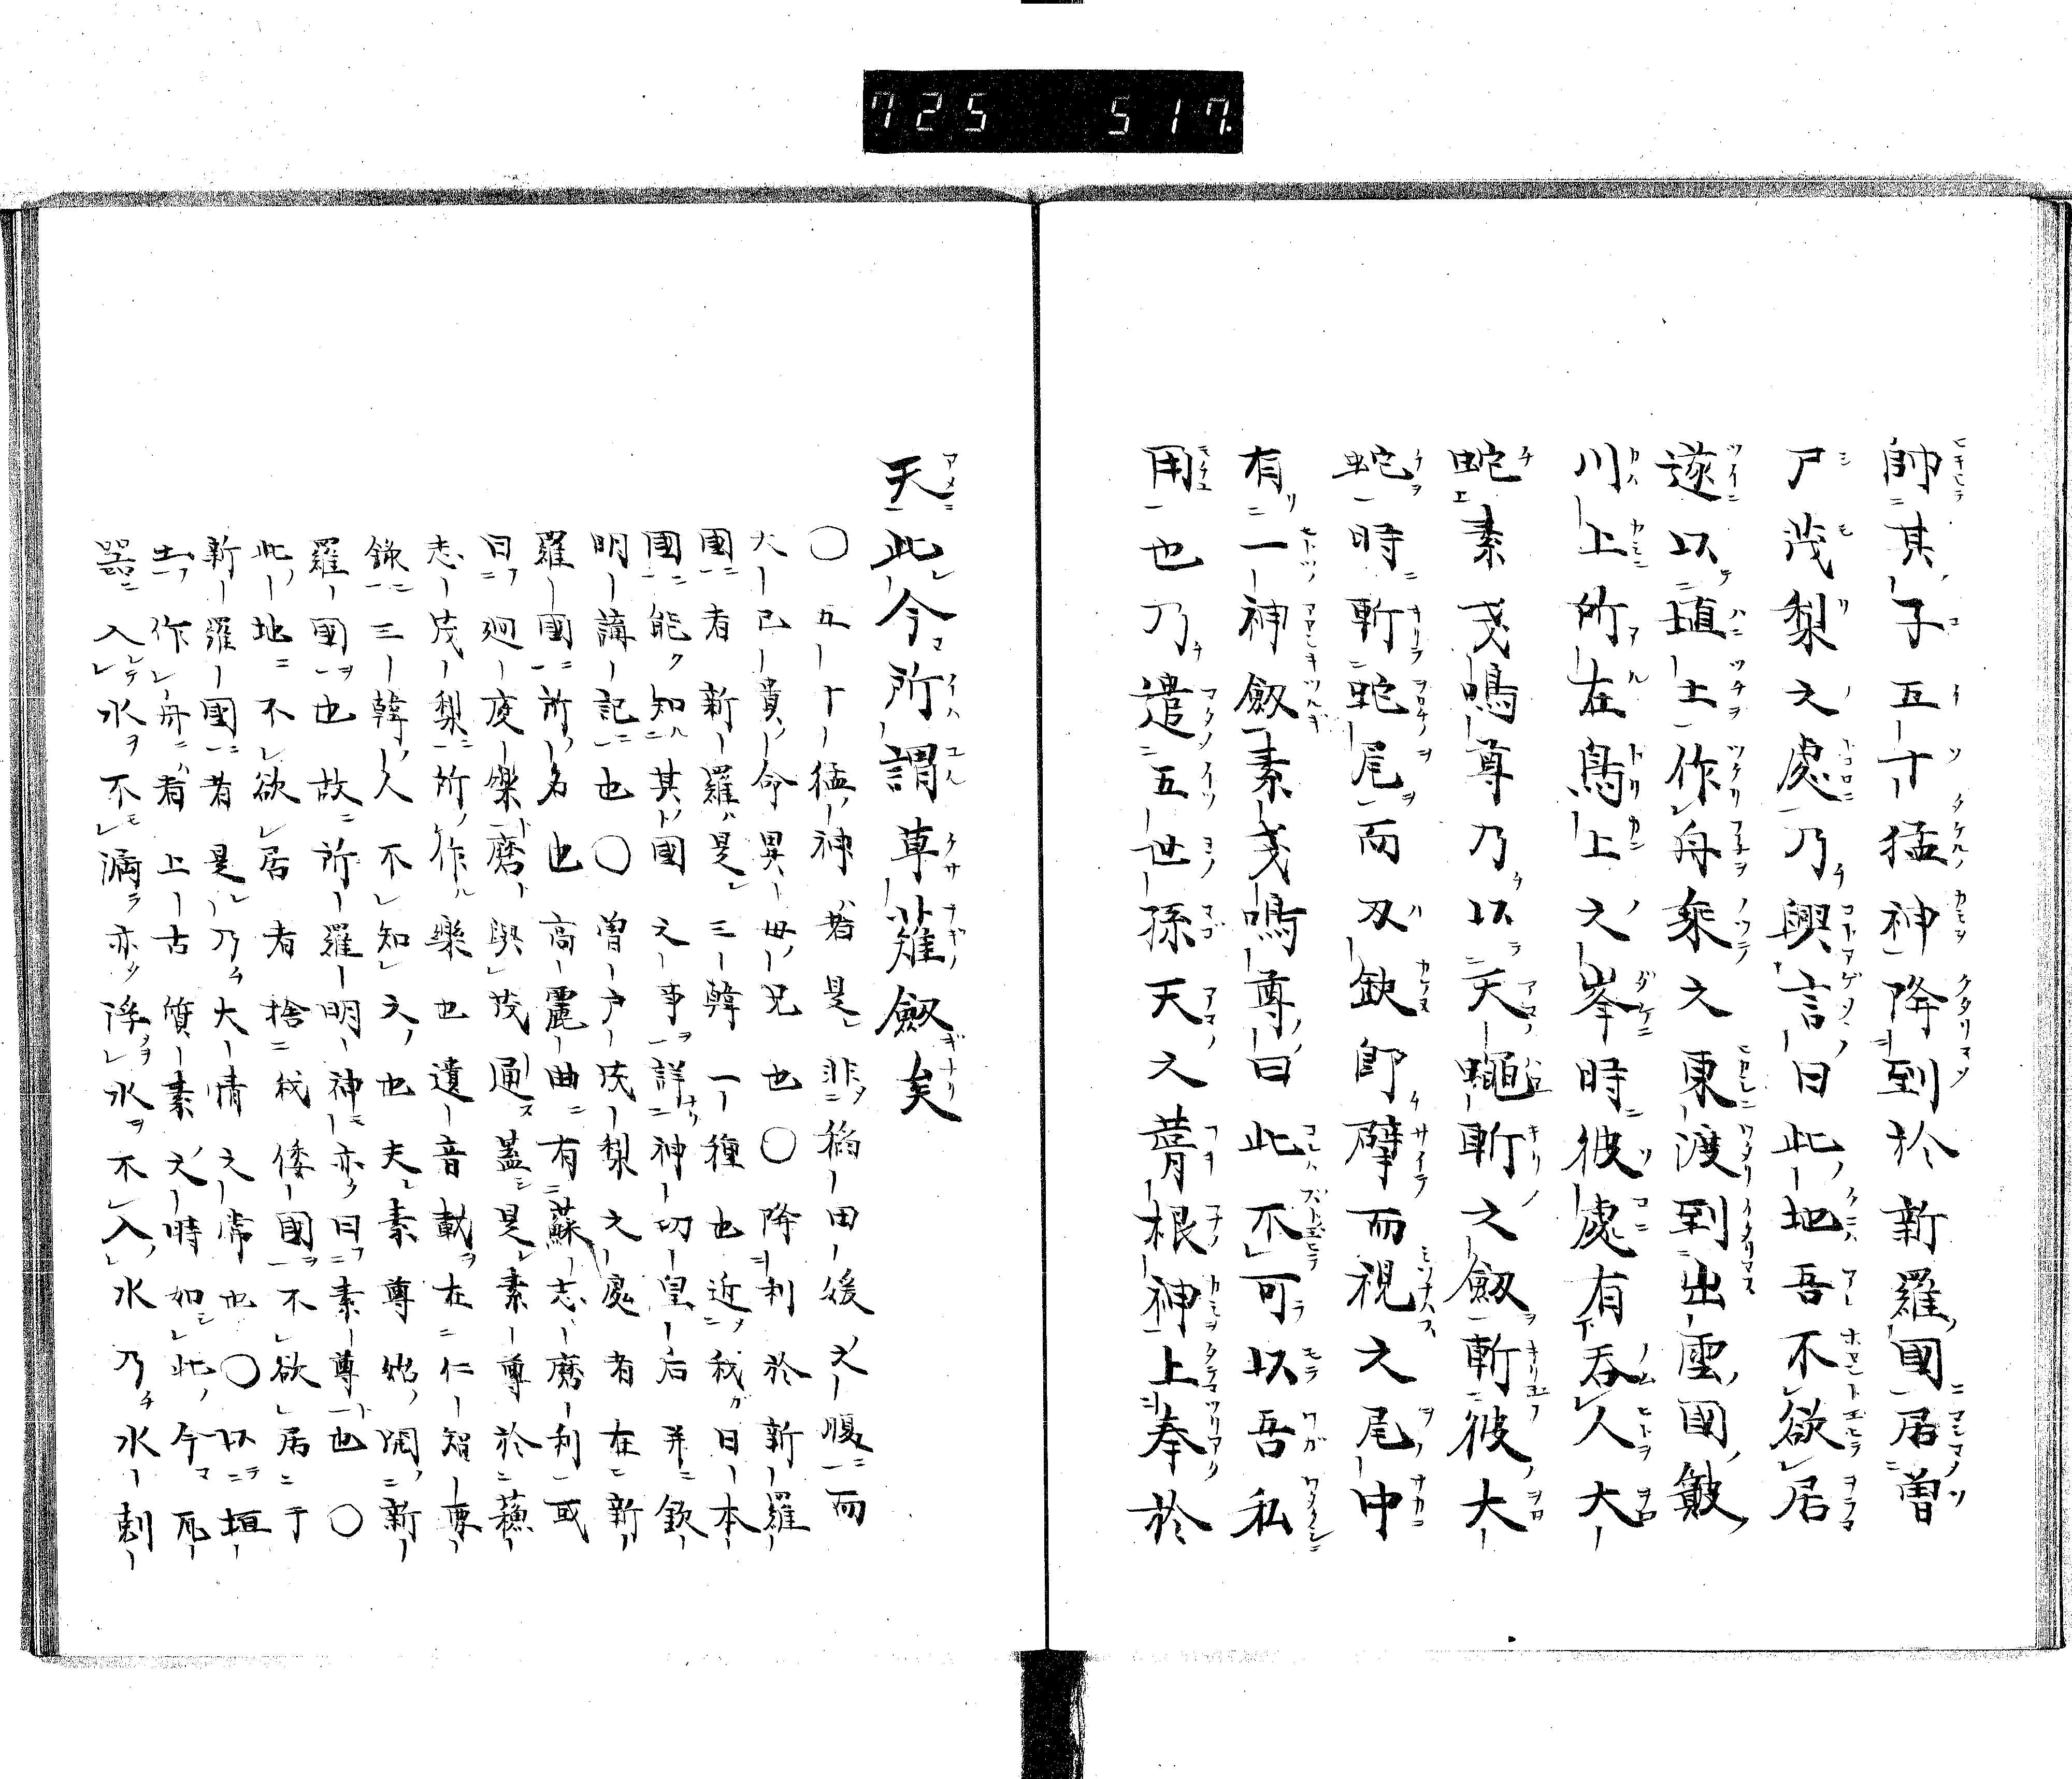 725 517
帥其子五十猛神降到於新羅國居曽
尸茂梨之處乃興言曰此地吾不欲居
遂以埴土作舟乗之東渡到出雲國簸
川上所在鳥上之峯時彼處有呑人大
蛇素戔嗚尊乃以天蠅斬之劔斬彼大
蛇時斬蛇尾而刃缺即擘而視之尾中
有一神劔素戔嗚尊曰此不可以吾私
用也乃遣五世孫天之葺根神上奉於
天此今所謂草薙劔矣
〇五十猛神者是非稲田媛之腹而
大己貴命異母兄也〇降到於新羅
國者新羅是三韓一種也近我日本
國能知其國之事詳神功皇后并欽
明講記也〇曽尸茂梨之處者在新
羅國所名也高麗曲有蘇志磨利或
曰廻庭樂磨與茂通蓋是素尊於蘓
志茂梨所作樂也遺音載在仁智要
錄三韓人不知之也夫素尊始開新
羅國也故所羅明神亦曰素尊也〇
此地不欲居者捨我倭國不欲居于
新羅國者是乃大情之常也〇以埴
土作舟者上古質素之時如此今瓦
器入水不漏亦浮水不入水乃水剌